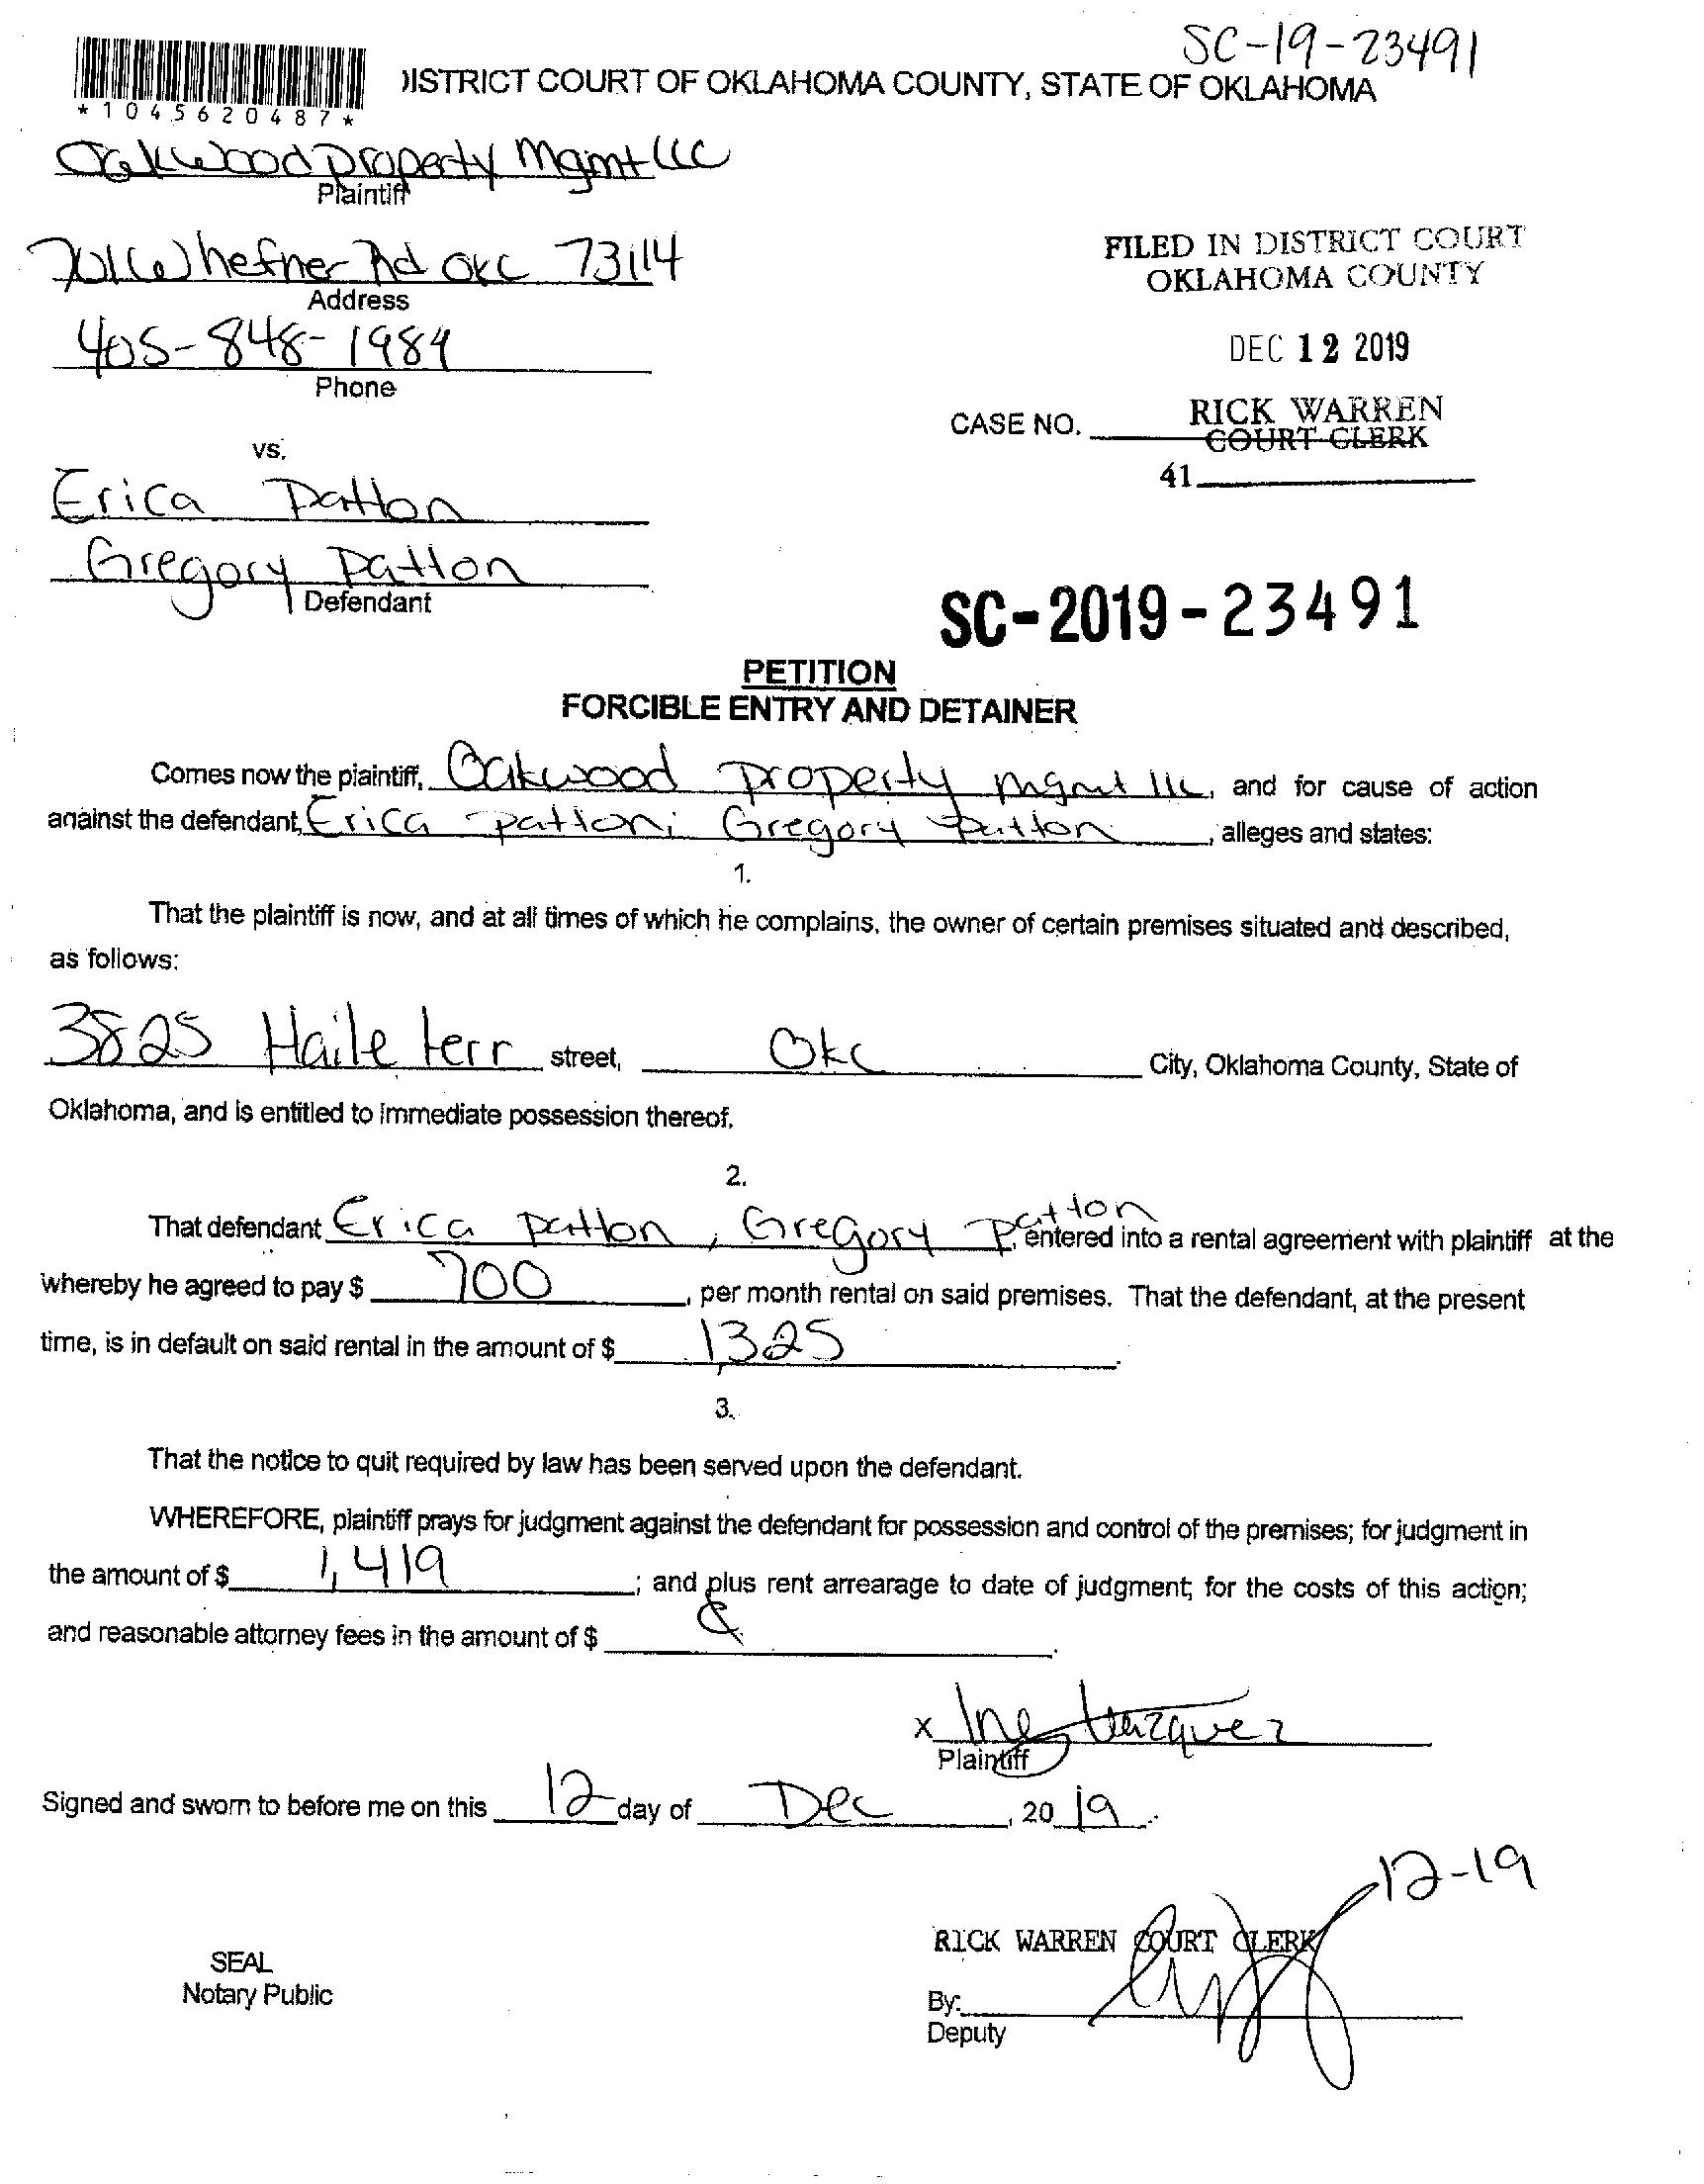 SC-19-23491
DISTRICT COURT OF OKLAHOMA COUNTY, STATE OF OKLAHOMA
*1045620487*
Oakwood property Mgmt LLC
Plaintiff
701 W hefner Rd OKC 73114
Address
FILED IN DISTRICT COURT
OKLAHOMA COUNTY
405-848-1984
Phone
DEC 12 2019
RICK WARREN
CASE NO.
COURT CLERK
vs.
41
Erica Patton
Gregory Patton
Defendant
SC-2019-23491
PETITION
FORCIBLE ENTRY AND DETAINER
Comes now the plaintiff, Oakwood property mgmt llc, and for cause of action
against the defendant, Erica patton; Gregory Patton, alleges and states:
1.
That the plaintiff is now, and at all times of which he complains, the owner of certain premises situated and described,
as follows:
3825 Haile terr street, Okc City, Oklahoma County, State of
Oklahoma, and is entitled to immediate possession thereof.
2.
That defendant Erica patton, Gregory Patton, entered into a rental agreement with plaintiff at the
whereby he agreed to pay $ 700, per month rental on said premises. That the defendant, at the present
time, is in default on said rental in the amount of $ 1,325.
3.
That the notice to quit required by law has been served upon the defendant.
WHEREFORE, plaintiff prays for judgment against the defendant for possession and control of the premises; for judgment in
the amount of $ 1,419; and plus rent arrearage to date of judgment; for the costs of this action;
and reasonable attorney fees in the amount of $ .
x Ines Vazquez
Plaintiff
Signed and sworn to before me on this 12 day of Dec, 20 19.
12-19
RICK WARREN COURT CLERK
SEAL
Notary Public
By:
Deputy